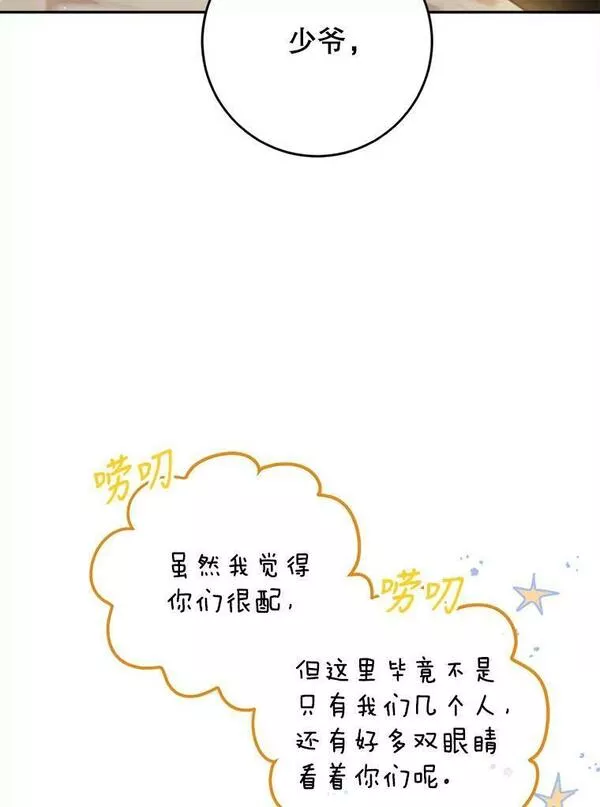 少爷，
唠叨
虽然我觉得
你们很配，
唠叨
但这里毕竟不是
只有我们几个人，
还有好多双眼睛
看着你们呢。